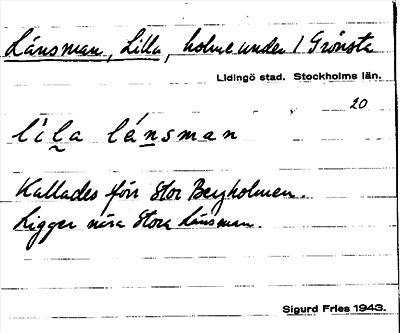 Länsman, Lilla, holme under 1 Grönsta
Lidingö stad. Stockholms län.
20
lila länsman
Kallades förr Stor Bergholmen.
Ligger nära Stora Länsman.
Sigurd Fries 1943.